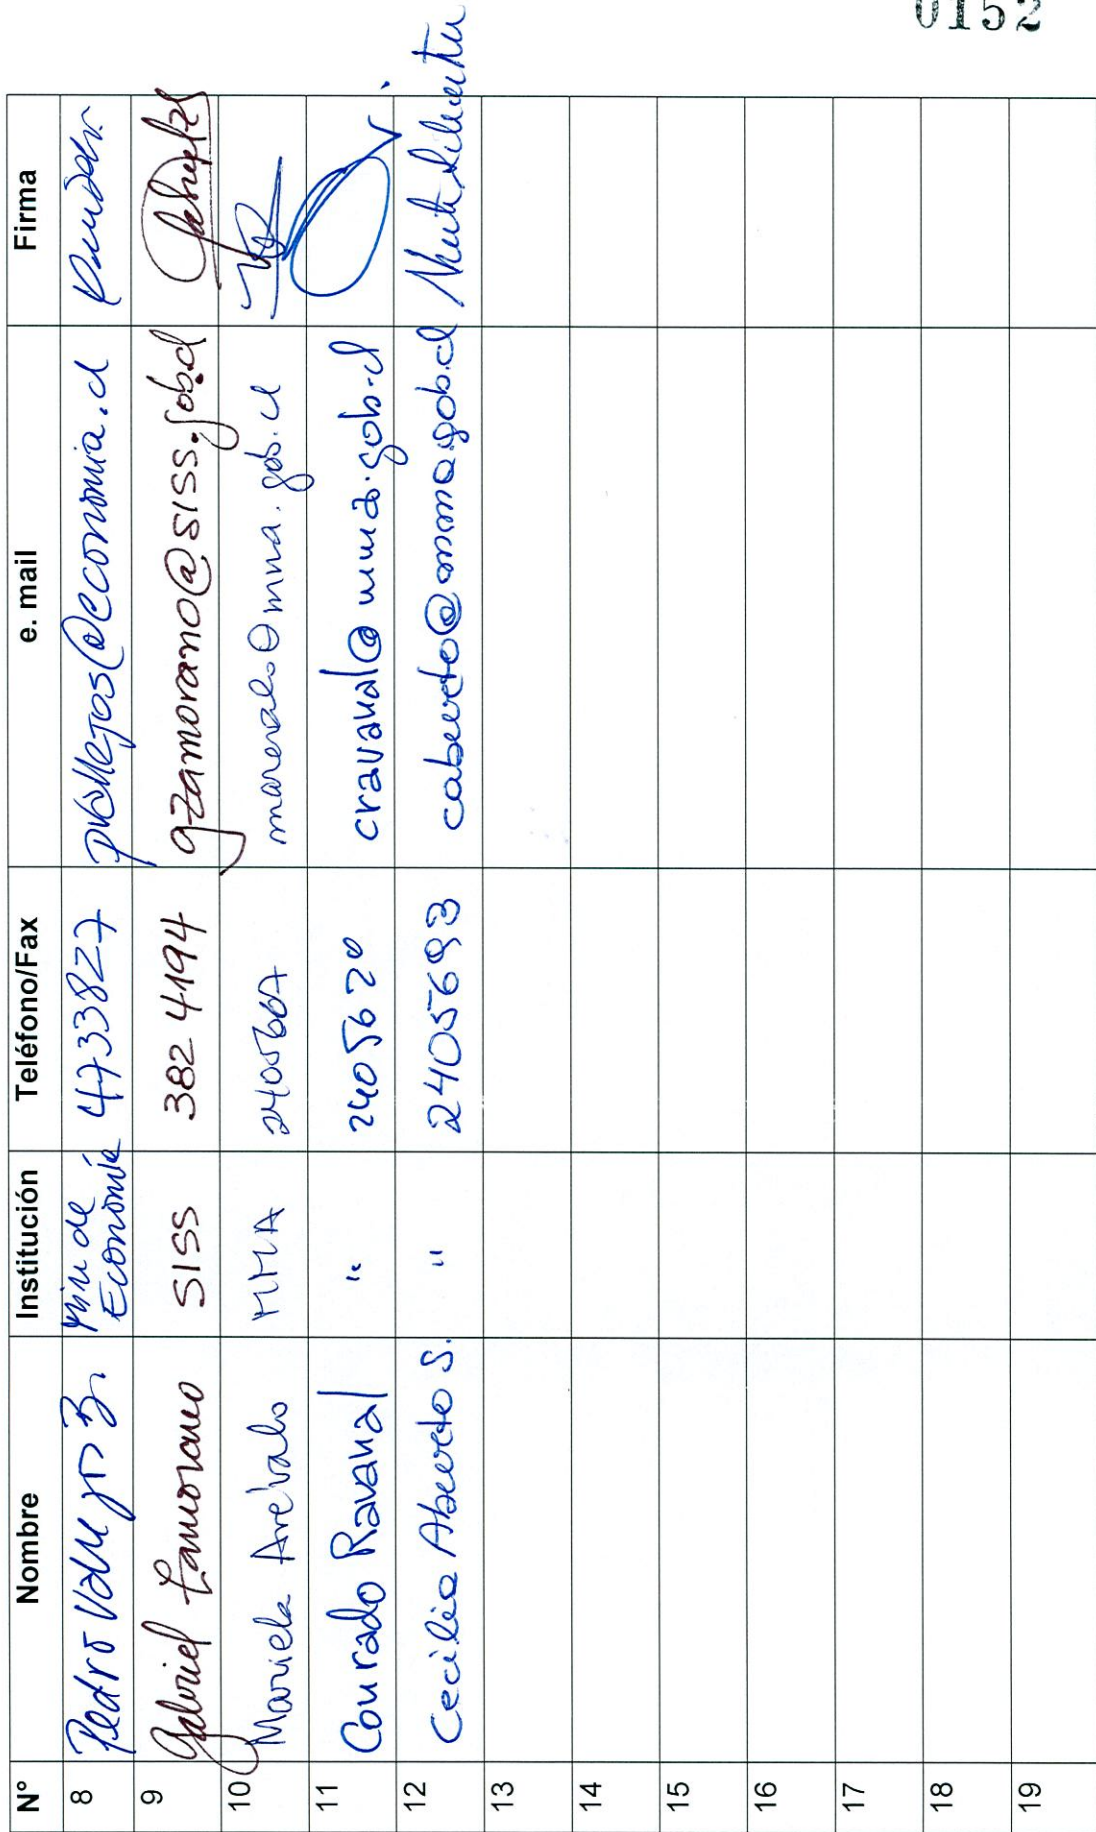 0152
N° Nombre Institución Teléfono/Fax e. mail Firma
8 Pedro Vallejos B. Min de Economía 4733827 pvallejos@economia.cl
9 Gabriel Zamorano SISS 382 4194 gzamorano@siss.gob.cl
10 Mariela Arévalo MMA marevalo@mma.gob.cl
11 Conrado Ravanal " 2405620 cravanal@mma.gob.cl
12 Cecilia Aburto S. " 2405693 caburto@mma.gob.cl
13
14
15
16
17
18
19